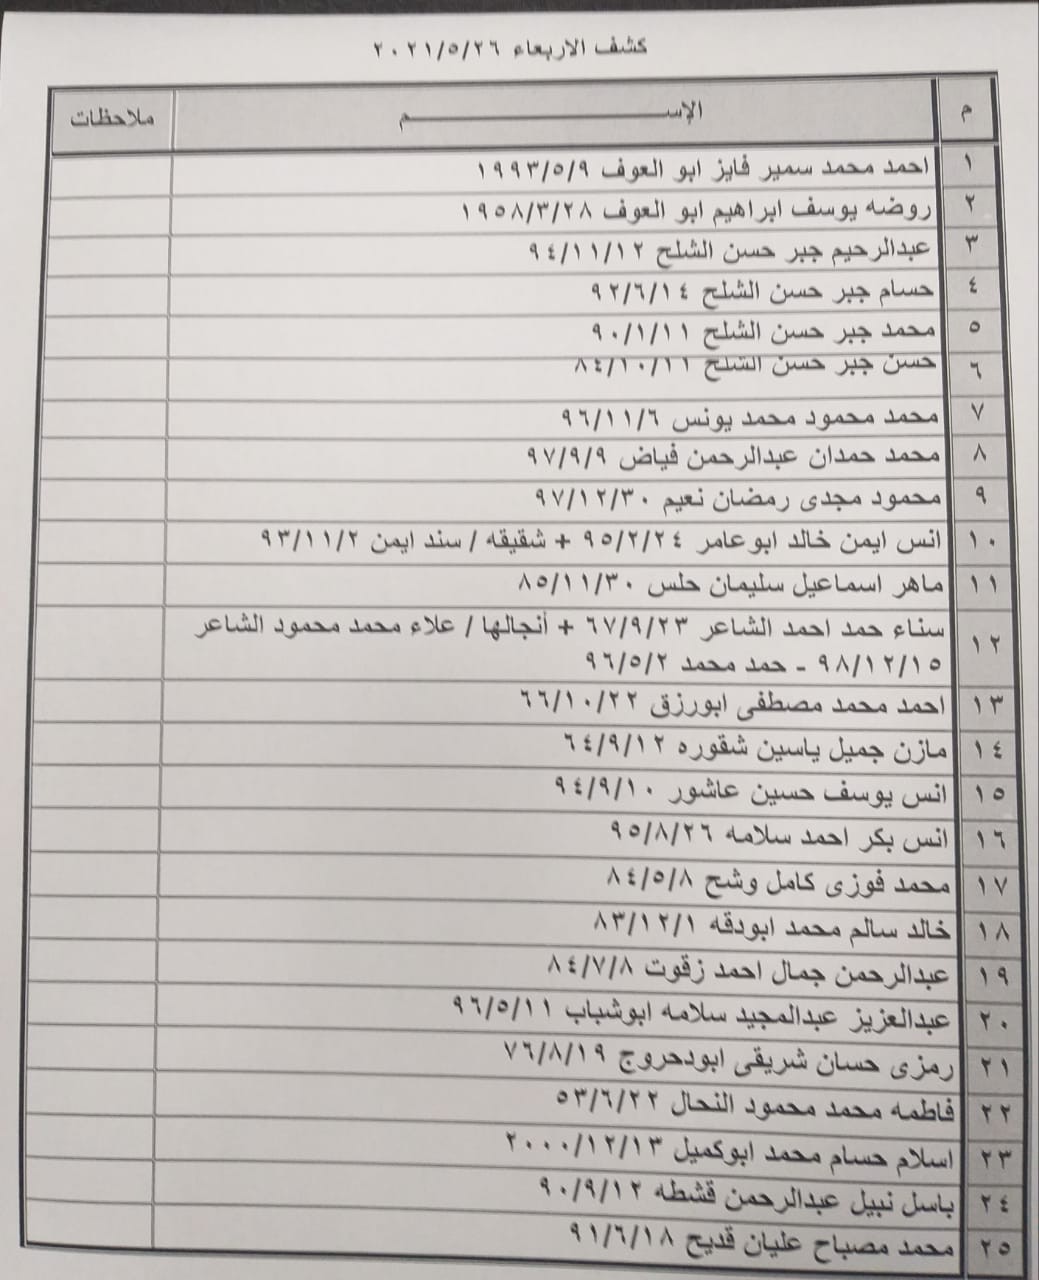 كشف الاربعاء ٢٠٢١/٥/٢٦
م الإســـــــم ملاحظات
١ احمد محمد سمير فايز ابو العوف ١٩٩٣/٥/٩
٢ روضه يوسف ابراهيم ابو العوف ١٩٥٨/٣/٢٨
٣ عبدالرحيم جبر حسن الشلح ٩٤/١١/١٢
٤ حسام جبر حسن الشلح ٩٢/٦/١٤
٥ محمد جبر حسن الشلح ٩٠/١/١١
٦ حسن جبر حسن الشلح ٨٤/١٠/١١
٧ محمد محمود محمد يونس ٩٦/١١/٦
٨ محمد حمدان عبدالرحمن فياض ٩٧/٩/٩
٩ محمود مجدى رمضان نعيم ٩٧/١٢/٣٠
١٠ انس ايمن خالد ابوعامر ٩٥/٢/٢٤ + شقيقه / سند ايمن ٩٣/١١/٢
١١ ماهر اسماعيل سليمان حلس ٨٥/١١/٣٠
١٢ سناء حمد احمد الشاعر ٦٧/٩/٢٣ + أنجالها / علاء محمد محمود الشاعر
٩٨/١٢/١٥ - حمد محمد ٩٦/٥/٢
١٣ احمد محمد مصطفى ابورزق ٦٦/١٠/٢٢
١٤ مازن جميل ياسين شقوره ٦٤/٩/١٢
١٥ انس يوسف حسين عاشور ٩٤/٩/١٠
١٦ انس بكر احمد سلامه ٩٥/٨/٢٦
١٧ محمد فوزى كامل وشح ٨٤/٥/٨
١٨ خالد سالم محمد ابودقه ٨٣/١٢/١
١٩ عبدالرحمن جمال احمد زقوت ٨٤/٧/٨
٢٠ عبدالعزيز عبدالمجيد سلامه ابوشباب ٩٦/٥/١١
٢١ رمزى حسان شريقى ابودحروج ٧٦/٨/١٩
٢٢ فاطمه محمد محمود النحال ٥٣/٦/٢٢
٢٣ اسلام حسام محمد ابوكميل ٢٠٠٠/١٢/١٣
٢٤ باسل نبيل عبدالرحمن قشطه ٩٠/٩/١٢
٢٥ محمد مصباح عليان قديح ٩١/٦/١٨